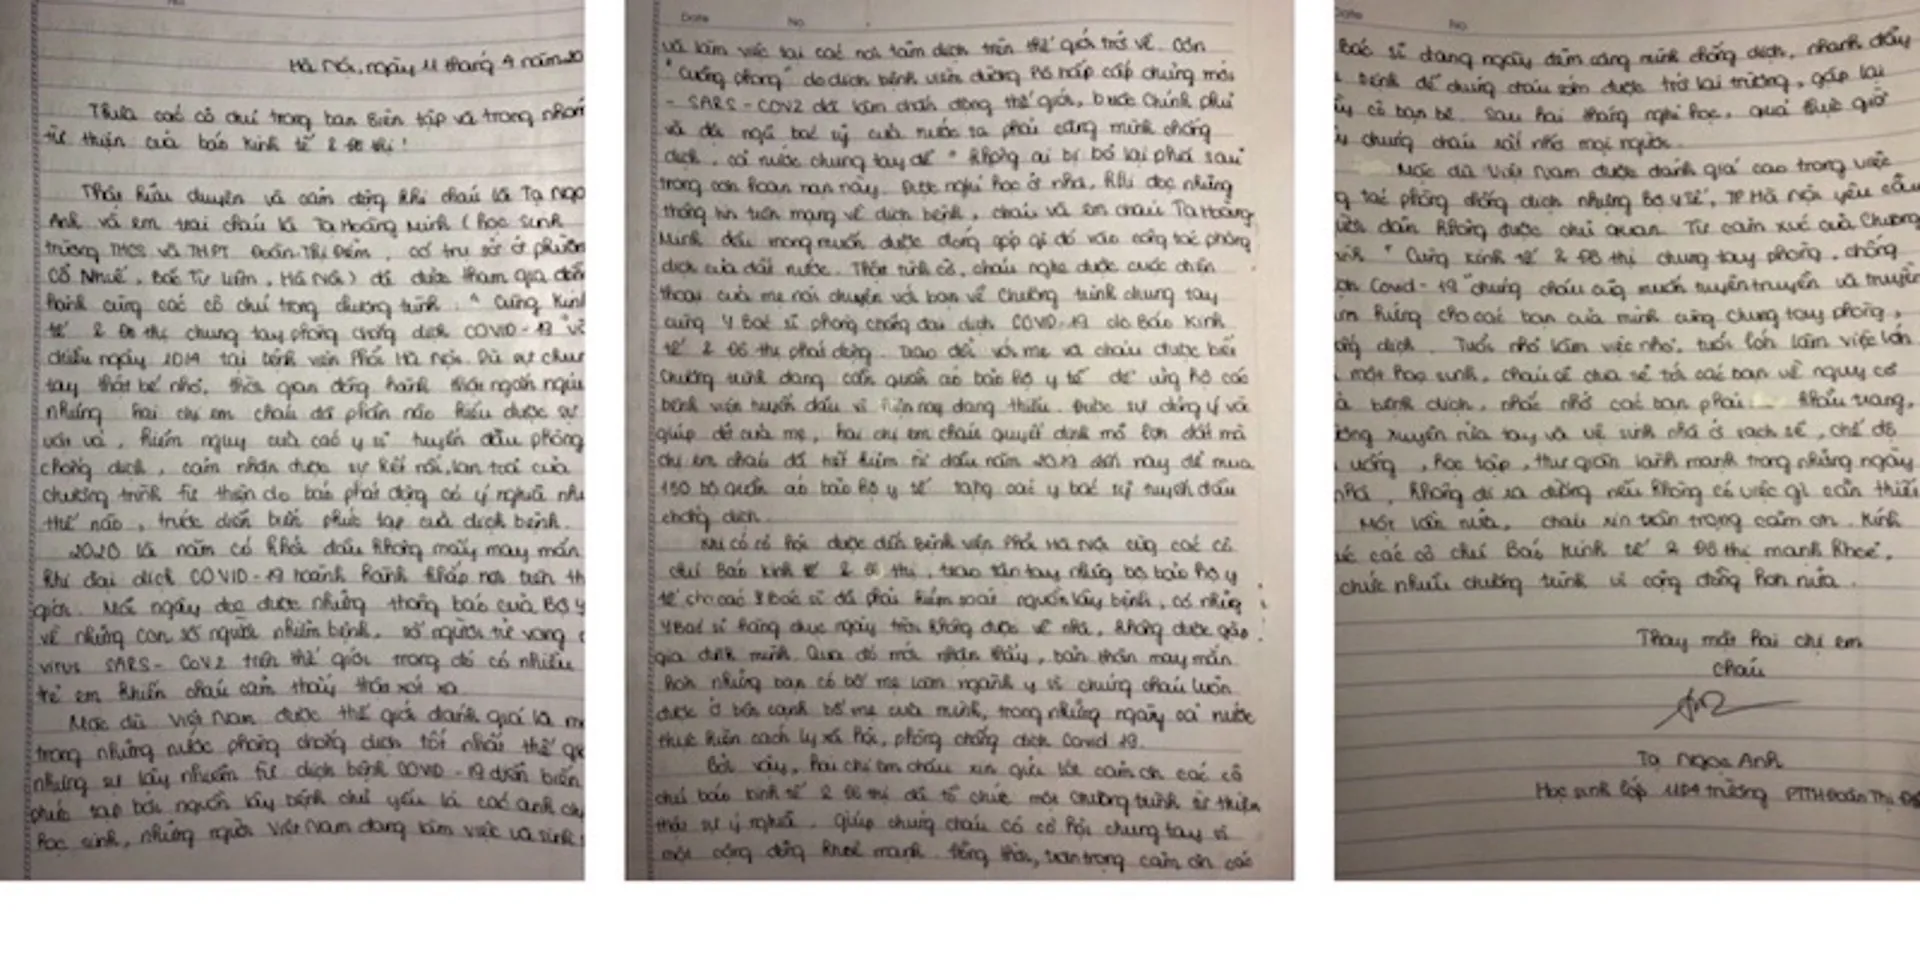 Hà Nội, ngày 11 tháng 4 năm 20
Thưa các cô chú trong ban Biên tập và trong nhóm
từ thiện của báo Kinh tế & Đô thị!
Thật hữu duyên và cảm động khi cháu là Tạ Ngọ
Anh và em trai cháu là Tạ Hoàng Minh (học sinh
trường THCS và THPT Đoàn Thị Điểm, có trụ sở ở phườn
Cổ Nhuế, Bắc Từ Liêm, Hà Nội) đã được tham gia đồn
hành cùng các cô chú trong chương trình: "Cùng Kinh
tế & Đô thị chung tay phòng chống dịch COVID-19" và
chiều ngày tại bệnh viện Phổi Hà Nội. Dù sự chun
tay thật bé nhỏ, thời gian đồng hành thật ngắn ngủi
nhưng hai chị em cháu đã phần nào hiểu được sự
vất vả, hiểm nguy của các y sĩ tuyến đầu phòng
chống dịch, cảm nhận được sự kết nối, lan toả của
chương trình từ thiện do báo phát động có ý nghĩa như
thế nào, trước diễn biến phức tạp của dịch bệnh.
2020 là năm có khởi đầu không mấy may mắn
khi đại dịch COVID-19 hoành hành khắp nơi trên th
giới. Mỗi ngày đọc được những thông báo của Bộ Y
về những con số người nhiễm bệnh, số người tử vong
virus SARS-CoV2 trên thế giới trong đó có nhiều
trẻ em khiến cháu cảm thấy thật xót xa.
Mặc dù Việt Nam được thế giới đánh giá là m
trong những nước phòng chống dịch tốt nhất thế gi
nhưng sự lây nhiễm từ dịch bệnh COVID-19 diễn biến
phức tạp bởi nguồn lây bệnh chủ yếu là các anh ch
học sinh, những người Việt Nam đang làm việc và sinh
Date No.
và làm việc tại các nơi tâm dịch trên thế giới trở về. Cơn
"Cuồng phong" do dịch bệnh viêm đường hô hấp cấp chủng mới
- SARS-COV2 đã làm chấn động thế giới, buộc Chính phủ
và đội ngũ bác sỹ của nước ta phải căng mình chống
dịch, cả nước chung tay để "không ai bị bỏ lại phía sau"
trong cơn hoạn nạn này. Được nghỉ học ở nhà, khi đọc những
thông tin trên mạng về dịch bệnh, cháu và em cháu Tạ Hoàng
Minh đều mong muốn được đóng góp gì đó vào công tác phòng
dịch của đất nước. Thật tình cờ, cháu nghe được cuộc điện
thoại của mẹ nói chuyện với bạn về Chương trình chung tay
cùng Y Bác sĩ phòng chống đại dịch COVID-19 do Báo Kinh
tế & Đô thị phát động. Trao đổi với mẹ và cháu được biết
Chương trình đang cần quần áo bảo hộ y tế để ủng hộ các
bệnh viện tuyến đầu vì hiện nay đang thiếu. Được sự đồng ý và
giúp đỡ của mẹ, hai chị em cháu quyết định mổ lợn đất mà
chị em cháu đã tiết kiệm từ đầu năm 2019 đến nay để mua
150 bộ quần áo bảo hộ y tế tặng các y bác sỹ tuyến đầu
chống dịch.
Khi có cơ hội được đến Bệnh viện Phổi Hà Nội cùng các cô
chú Báo Kinh tế & Đô thị, trao tận tay những bộ bảo hộ y
tế cho các Y Bác sĩ đã phải kiểm soát nguồn lây bệnh, có những
Y Bác sĩ hàng chục ngày trời không được về nhà, không được gặp
gia đình mình. Qua đó mới nhận thấy, bản thân may mắn
hơn những bạn có bố mẹ làm ngành y vì chúng cháu luôn
được ở bên cạnh bố mẹ của mình, trong những ngày cả nước
thực hiện cách ly xã hội, phòng chống dịch Covid 19.
Bởi vậy, hai chị em cháu xin gửi lời cảm ơn các cô
chú báo Kinh tế & Đô thị đã tổ chức một chương trình từ thiện
thật sự ý nghĩa, giúp chúng cháu có cơ hội chung tay vì
một cộng đồng khoẻ mạnh. Đồng thời, trân trọng cảm ơn các
Date No.
Bác sĩ đang ngày đêm căng mình chống dịch, nhanh đẩy
bệnh để chúng cháu sớm được trở lại trường, gặp lại
cô bạn bè. Sau hai tháng nghỉ học, quả thực giờ
chúng cháu rất nhớ mọi người.
Mặc dù Việt Nam được đánh giá cao trong việc
g tác phòng chống dịch nhưng Bộ Y Tế, TP Hà Nội yêu cầu
dân không được chủ quan. Từ cảm xúc của Chương
ình "Cùng Kinh tế & Đô thị chung tay phòng, chống
ch Covid-19" chúng cháu cũng muốn tuyên truyền và truyền
m hứng cho các bạn của mình cùng chung tay phòng,
ống dịch. Tuổi nhỏ làm việc nhỏ, tuổi lớn làm việc lớn
một học sinh, cháu sẽ chia sẻ tới các bạn về nguy cơ
bệnh dịch, nhắc nhở các bạn phải khẩu trang,
ờng xuyên rửa tay và vệ sinh nhà ở sạch sẽ, chế độ
uống, học tập, thư giãn lành mạnh trong những ngày
nhà, không đi ra đường nếu không có việc gì cần thiết
Một lần nữa, cháu xin trân trọng cảm ơn. Kính
các cô chú Báo Kinh tế & Đô thị mạnh khoẻ,
chức nhiều chương trình vì cộng đồng hơn nữa.
Thay mặt hai chị em
Cháu
Tạ Ngọc Anh
Học sinh lớp trường PTTH Đoàn Thị Đi